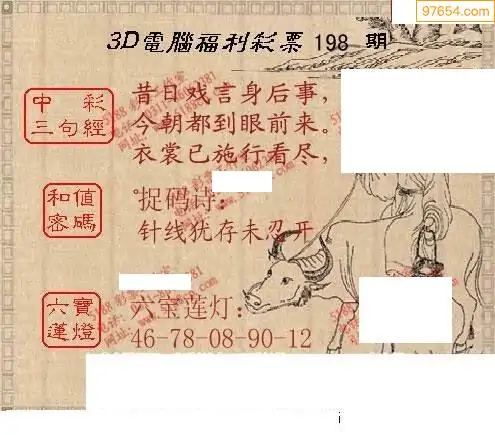 97654.com
3D電腦福利彩票 198 期
中彩
三句經
昔日戏言身后事，
今朝都到眼前来。
衣裳已施行看尽，
和值
密碼
捉码诗：
针线犹存未忍开
六寶
蓮燈
六宝莲灯：
46-78-08-90-12